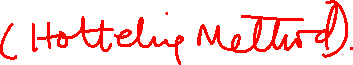 (Hotteling Method).